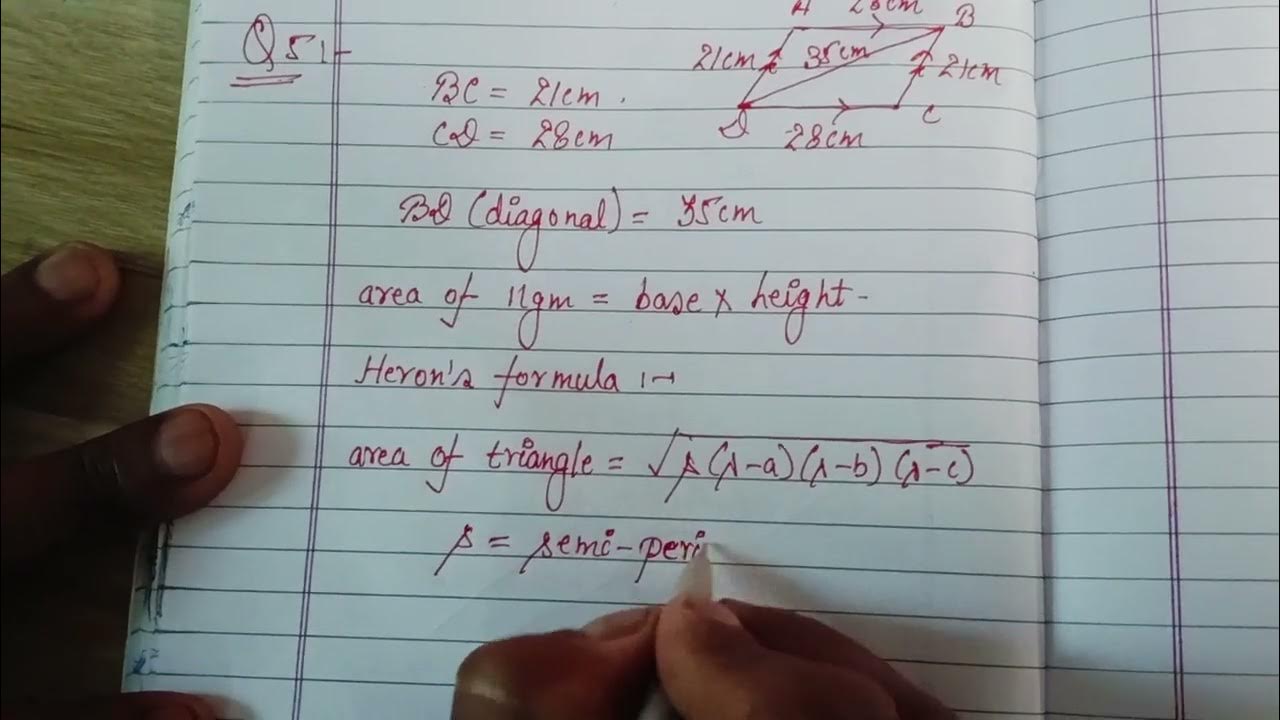 Q5:-
A 28cm B
21cm 35cm 21cm
D 28cm C
BC = 21cm.
CD = 28cm
BD (diagonal) = 35cm
area of ||gm = base × height-
Heron's formula :-
area of triangle = √s(s-a)(s-b)(s-c)
s = semi-peri